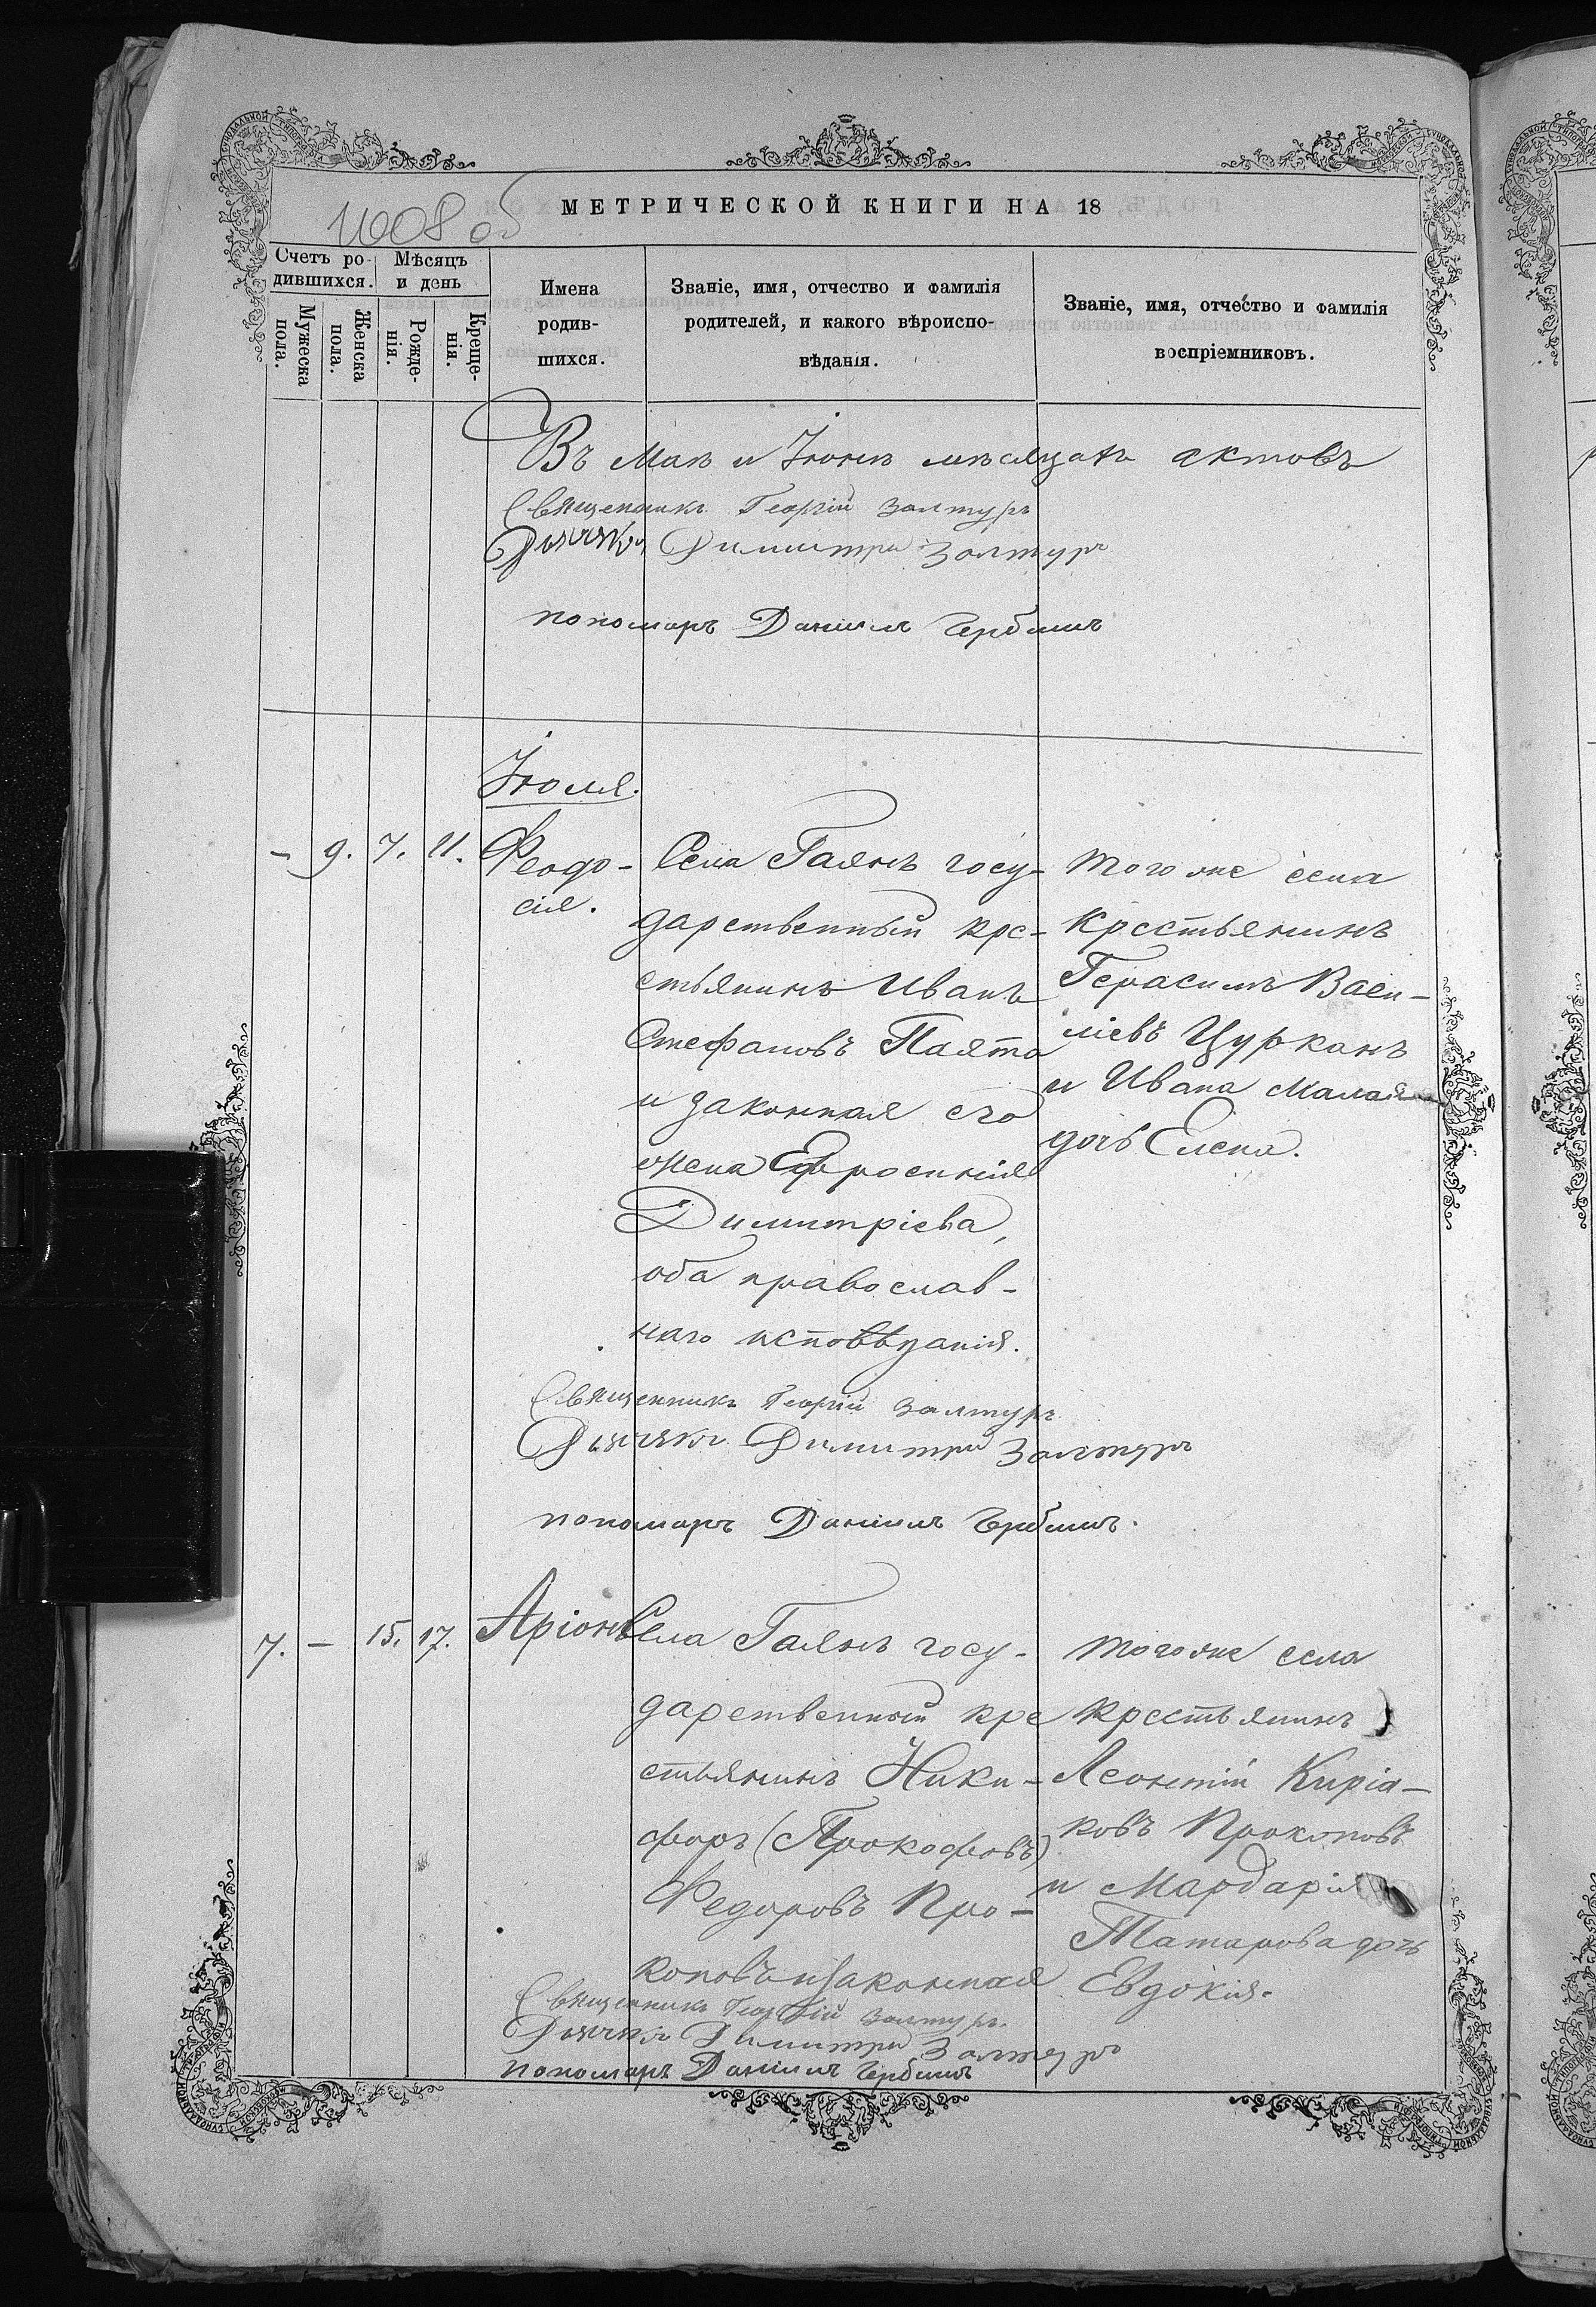 1008 об
МЕТРИЧЕСКОЙ КНИГИ НА 18
Счетъ ро-
дившихся.
Мѣсяцъ
и день
Мужеска
пола.
Женска
пола.
Рожде-
нія.
Креще-
нія.
Имена
родив-
шихся.
Званіе, имя, отчество и фамилія
родителей, и какого вѣроиспо-
вѣданія.
Званіе, имя, отчество и фамилія
воспріемниковъ.
Въ Маѣ и Іюнѣ мѣсяцахъ актовъ
Священникъ Георгій Залтуръ
Дьячекъ Димитри Залтуръ
пономаръ Даніилъ Чербишъ
Іюля.
– 9. 7. 11.
Феодо-
сія.
Села Гаянъ госу-
дарственный кре-
стьянинъ Иванъ
Стефановъ Паято
и законная его
жена Ефросинія
Димитріева,
оба православ-
наго исповѣданія.
Того же села
крестьянинъ
Герасимъ Васи-
ліевъ Цурканъ
и Ивана
дочь Елена.
Священникъ Георгій Залтуръ
Дьячекъ Димитри Залтуръ
пономаръ Даніилъ Чербишъ.
7. – 15. 17.
Аріонъ
Села Гаянъ госу-
дарственный кре
стьянинъ Ники-
форъ (Прокофовъ)
Федоровъ Про-
коповъ и законная
Того же села
крестьянинъ
Леонтій Киріа-
ковъ Прокоповъ
и Мардарія
Татарова дочь
Евдокія.
Священникъ Георгій Залтуръ.
Дьячекъ Димитри Залтуръ
пономаръ Даніилъ Чербишъ